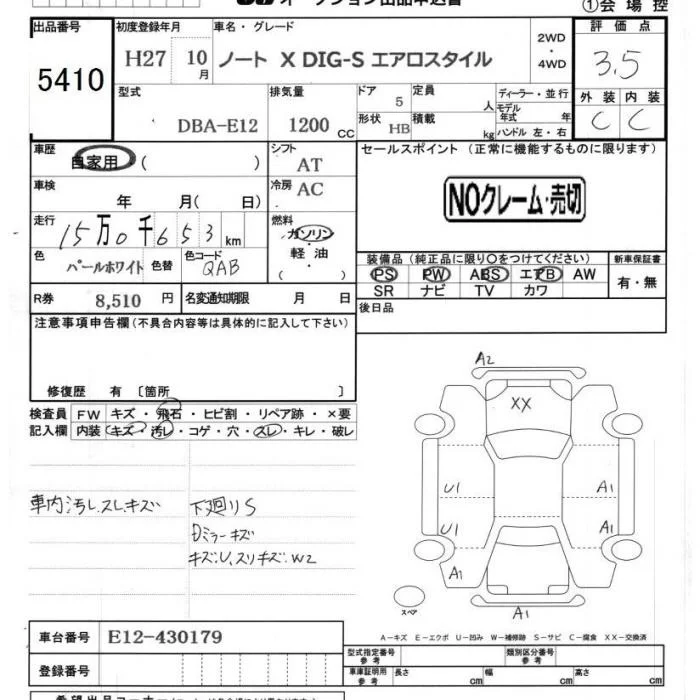 オークション出品申込書
①会場控
出品番号 5410
初度登録年月 H27 10月
車名・グレード ノート X DIG-S エアロスタイル
2WD・4WD
評価点 3.5
外装 C 内装 C
型式 DBA-E12
排気量 1200 cc
ドア 5
形状 HB
定員 人
積載 kg
ディーラー・並行
モデル年式 年
ハンドル 左・右
車歴 自家用 ( )
シフト AT
車検 年 月( 日)
冷房 AC
走行 15万0千653km
燃料 ガソリン・軽油 ( )
色 パールホワイト 色替
色コード QAB
R券 8,510 円
名変通知期限 月 日
セールスポイント (正常に機能するものに限ります)
NOクレーム・売切
装備品 (純正品に限り〇をつけてください)
PS PW ABS エアB AW
SR ナビ TV カワ
新車保証書 有・無
後日品
注意事項申告欄(不具合内容等は具体的に記入して下さい)
修復歴 有 〔箇所 〕
検査員記入欄
FW キズ・飛石・ヒビ割・リペア跡・×要
内装 キズ・汚レ・コゲ・穴・スレ・キレ・破レ
車内汚レ.スレキズ
下廻りS
Dミラーキズ
キズU.スリキズ.W2
A2
XX
U1
A1
U1
A1
A1
A1
A1
スペア
A−キズ E−エクボ U−凹み W−補修跡 S−サビ C−腐食 XX−交換済
車台番号 E12-430179
登録番号
型式指定番号 参考
類別区分番号 参考
車庫証明用 参考 長さ cm 幅 cm 高さ cm